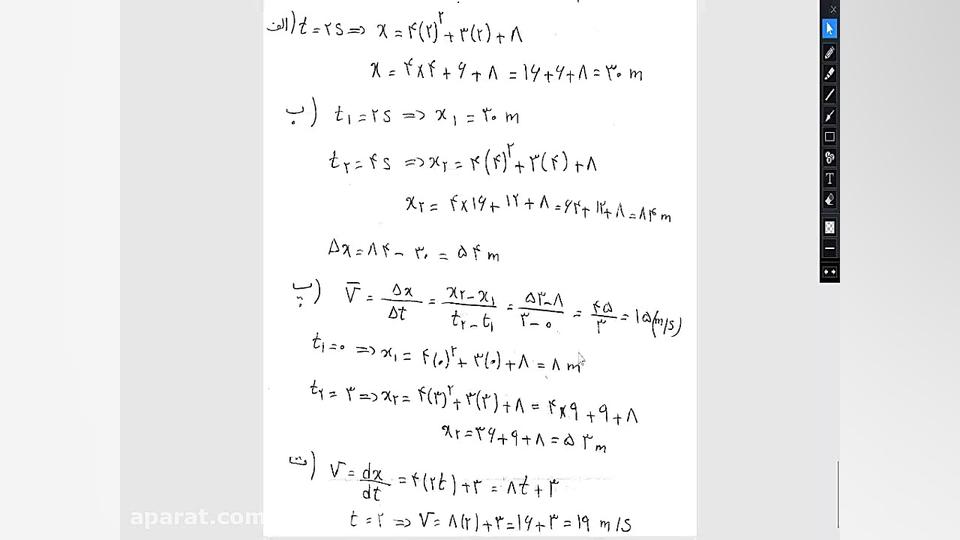 الف) t = ۲s ⇒ x = ۴(۲)^۲ + ۳(۲) + ۸
x = ۴×۴ + ۶ + ۸ = ۱۶+۶+۸ = ۳۰ m
ب) t۱ = ۲s ⇒ x۱ = ۳۰ m
t۲ = ۴s ⇒ x۲ = ۴(۴)^۲ + ۳(۴) + ۸
x۲ = ۴×۱۶ + ۱۲ + ۸ = ۶۴+۱۲+۸ = ۸۴ m
Δx = ۸۴ - ۳۰ = ۵۴ m
پ) V̄ = Δx/Δt = (x۲-x۱)/(t۲-t۱) = (۵۳-۸)/(۳-۰) = ۴۵/۳ = ۱۵(m/s)
t۱ = ۰ ⇒ x۱ = ۴(۰)^۲ + ۳(۰) + ۸ = ۸ m
t۲ = ۳ ⇒ x۲ = ۴(۳)^۲ + ۳(۳) + ۸ = ۴×۹ + ۹ + ۸
x۲ = ۳۶+۹+۸ = ۵۳ m
ت) V = dx/dt = ۴(۲t)+۳ = ۸t+۳
t = ۲ ⇒ V = ۸(۲)+۳ = ۱۶+۳ = ۱۹ m/s
aparat.com
T